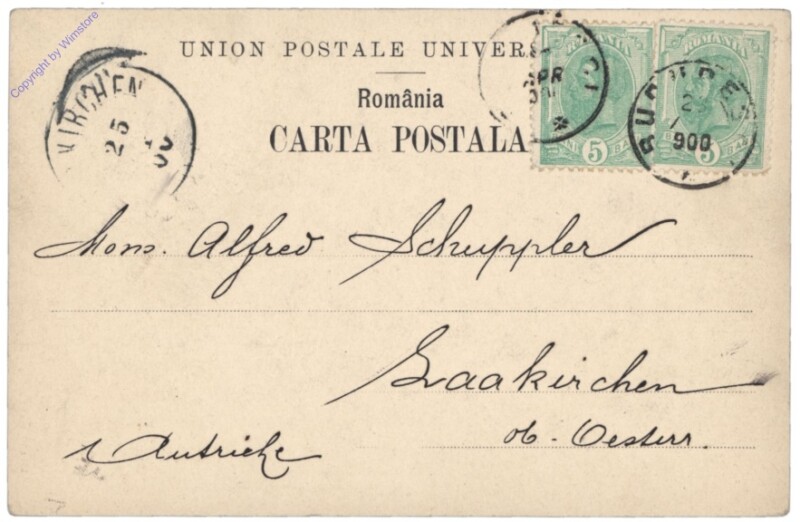 Copyright by Wimstore
UNION POSTALE UNIVERS
România
CARTA POSTALA
KIRCHEN
25
ROMANIA
5
APR
ROMANIA
5
900
Mons. Alfred Schuppler
Laakirchen
ob. Oesterr.
Autriche